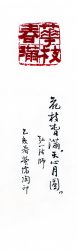 華枝
春滿
花枝春滿"天心月圓"
弘一法師
乙亥春
陶印